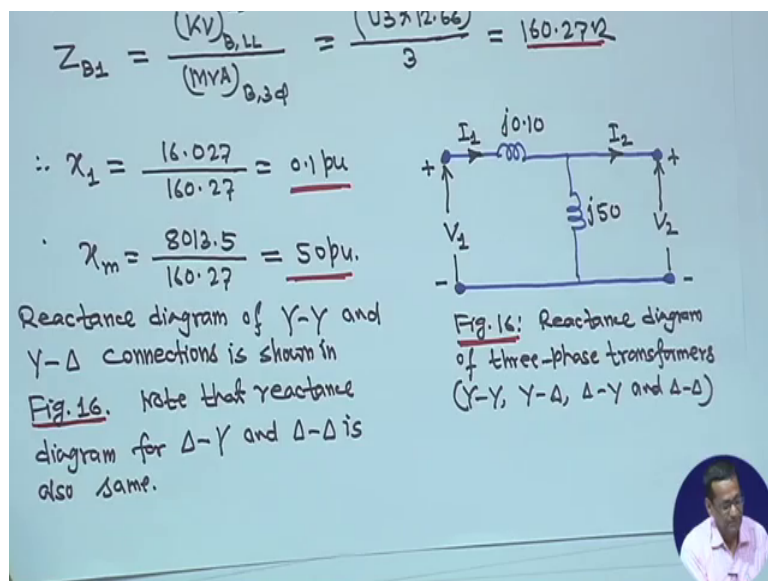 Z_B1 = (KV)_B,LL / (MVA)_B,3φ = (√3×12.66) / 3 = 160.27Ω
∴ x_1 = 16.027 / 160.27 = 0.1 pu
x_m = 8013.5 / 160.27 = 50 pu.
Reactance diagram of Y-Y and
Y-Δ connections is shown in
Fig. 16. Note that reactance
diagram for Δ-Y and Δ-Δ is
also same.
I_1 j0.10 I_2
+ +
j50
V_1 V_2
- -
Fig. 16: Reactance diagram
of three-phase transformers
(Y-Y, Y-Δ, Δ-Y and Δ-Δ)